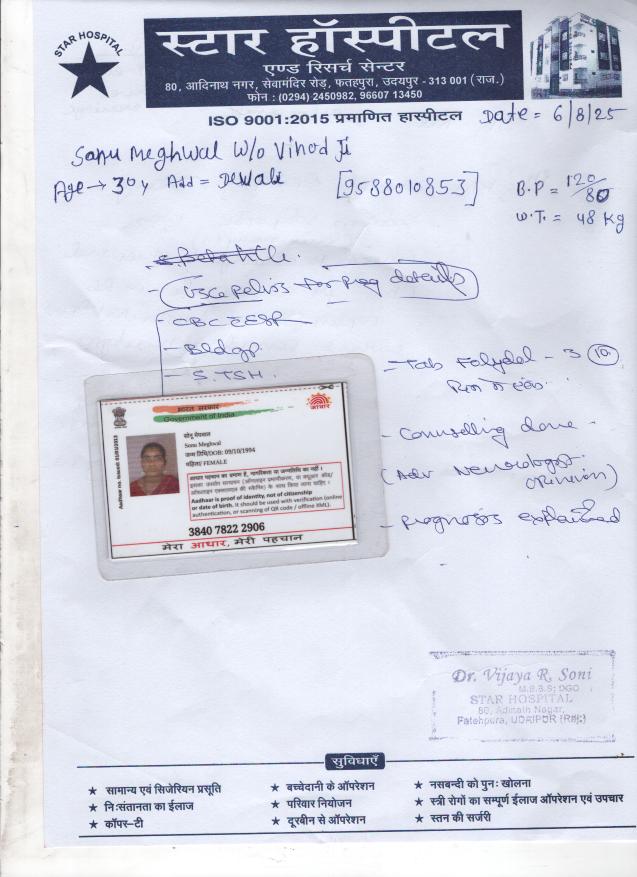 STAR HOSPITAL
स्टार हॉस्पीटल
एण्ड रिसर्च सेन्टर
80, आदिनाथ नगर, सेवामंदिर रोड़, फतहपुरा, उदयपुर - 313 001 (राज.)
फोन : (0294) 2450982, 96607 13450
ISO 9001:2015 प्रमाणित हास्पीटल
Date = 6/8/25
Sonu Meghwal W/o Vinod Ji
Age → 30y Add = Dewali
[9588010853]
B.P = 120/80
W.T. = 48 Kg
USG pelvis for preg details
- CBC ESR
- Bldgp
- S.TSH.
- Tab Folydel - 3 (10)
- Counselling done -
(Adv Neurologist opinion)
- Prognosis explained
भारत सरकार
Government of India
आधार
Aadhaar no. issued: 01/03/2013
सोनू मेघवाल
Sonu Meghwal
जन्म तिथि/DOB: 09/10/1994
महिला/ FEMALE
आधार पहचान का प्रमाण है, नागरिकता या जन्मतिथि का नहीं।
Aadhaar is proof of identity, not of citizenship
or date of birth. It should be used with verification (online
authentication, or scanning of QR code / offline XML).
3840 7822 2906
मेरा आधार, मेरी पहचान
Dr. Vijaya R. Soni
M.B.B.S; DGO
STAR HOSPITAL
80, Adinath Nagar,
Fatehpura, UDAIPUR (Raj.)
सुविधाएँ
★ सामान्य एवं सिजेरियन प्रसूति ★ बच्चेदानी के ऑपरेशन ★ नसबन्दी को पुनः खोलना
★ निःसंतानता का ईलाज ★ परिवार नियोजन ★ स्त्री रोगों का सम्पूर्ण ईलाज ऑपरेशन एवं उपचार
★ कॉपर-टी ★ दूरबीन से ऑपरेशन ★ स्तन की सर्जरी